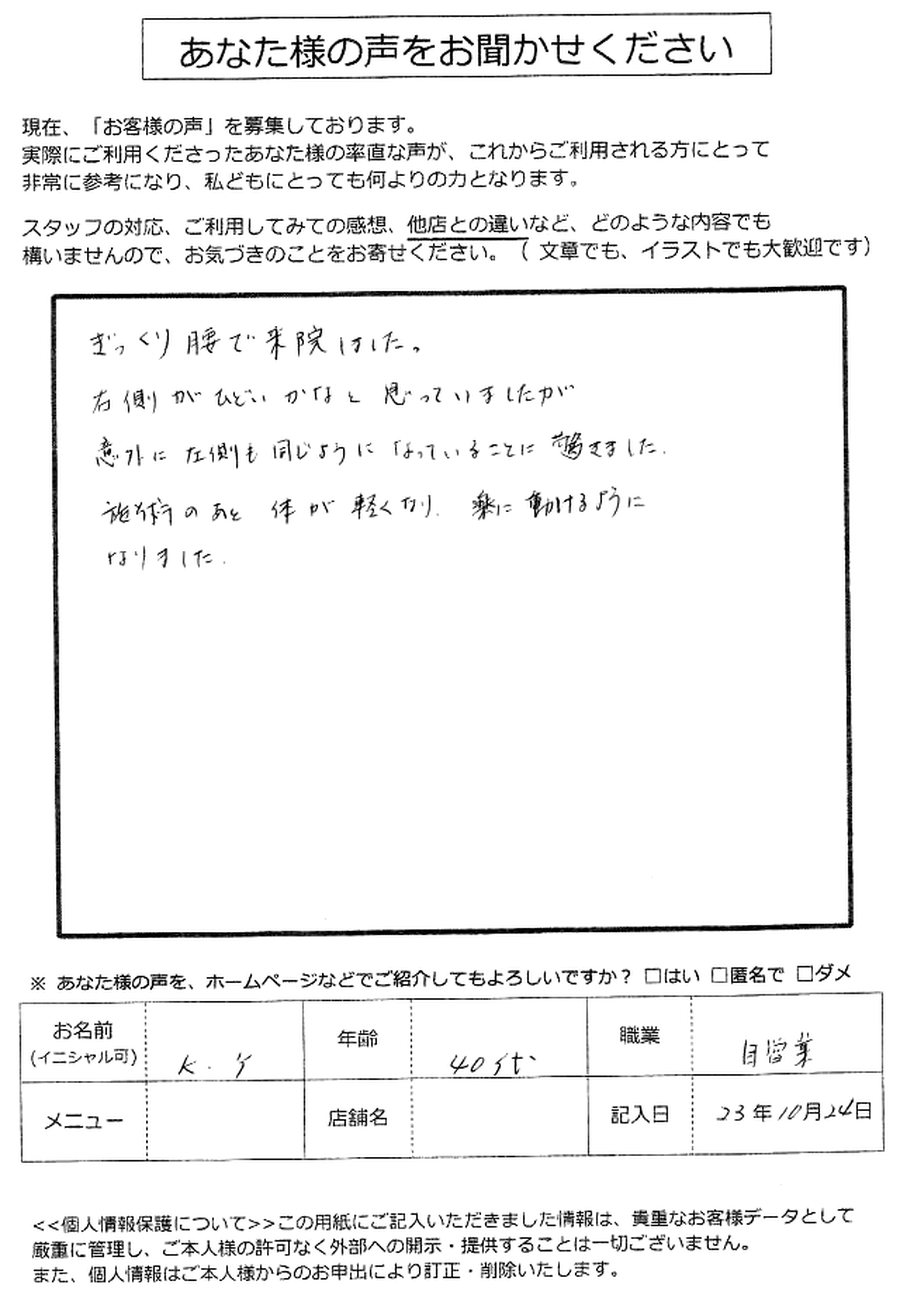 あなた様の声をお聞かせください
現在、「お客様の声」を募集しております。
実際にご利用くださったあなた様の率直な声が、これからご利用される方にとって
非常に参考になり、私どもにとっても何よりの力となります。
スタッフの対応、ご利用してみての感想、他店との違いなど、どのような内容でも
構いませんので、お気づきのことをお寄せください。（ 文章でも、イラストでも大歓迎です）
ぎっくり腰で来院しました。
右側がひどいかなと思っていましたが
意外に左側も同じようになっていることに驚きました.
施術のあと 体が軽くなり. 楽に動けるように
なりました.
※ あなた様の声を、ホームページなどでご紹介してもよろしいですか？ □はい □匿名で □ダメ
お名前
(イニシャル可) K.Y 年齢 40代 職業 自営業
メニュー 店舗名 記入日 23年10月24日
<<個人情報保護について>>この用紙にご記入いただきました情報は、貴重なお客様データとして
厳重に管理し、ご本人様の許可なく外部への開示・提供することは一切ございません。
また、個人情報はご本人様からのお申出により訂正・削除いたします。